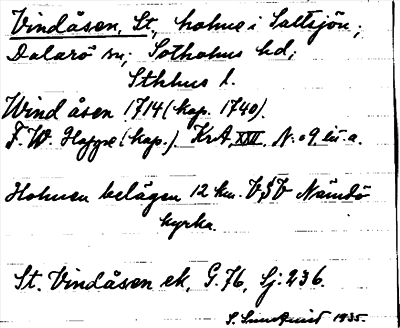 Vindåsen, St., holme i Saltsjön;
Dalarö sn; Sotholms hd;
Sthlms l.
Wind åsen 1714 (kop. 1740).
F. W. (kop.). KrA, XXII. N:o 9 lit. a.
Holmen belägen 12 km. VSV Nämdö
kyrka.
St. Vindåsen ek, G. 76, Sj: 236.
S. 1935.